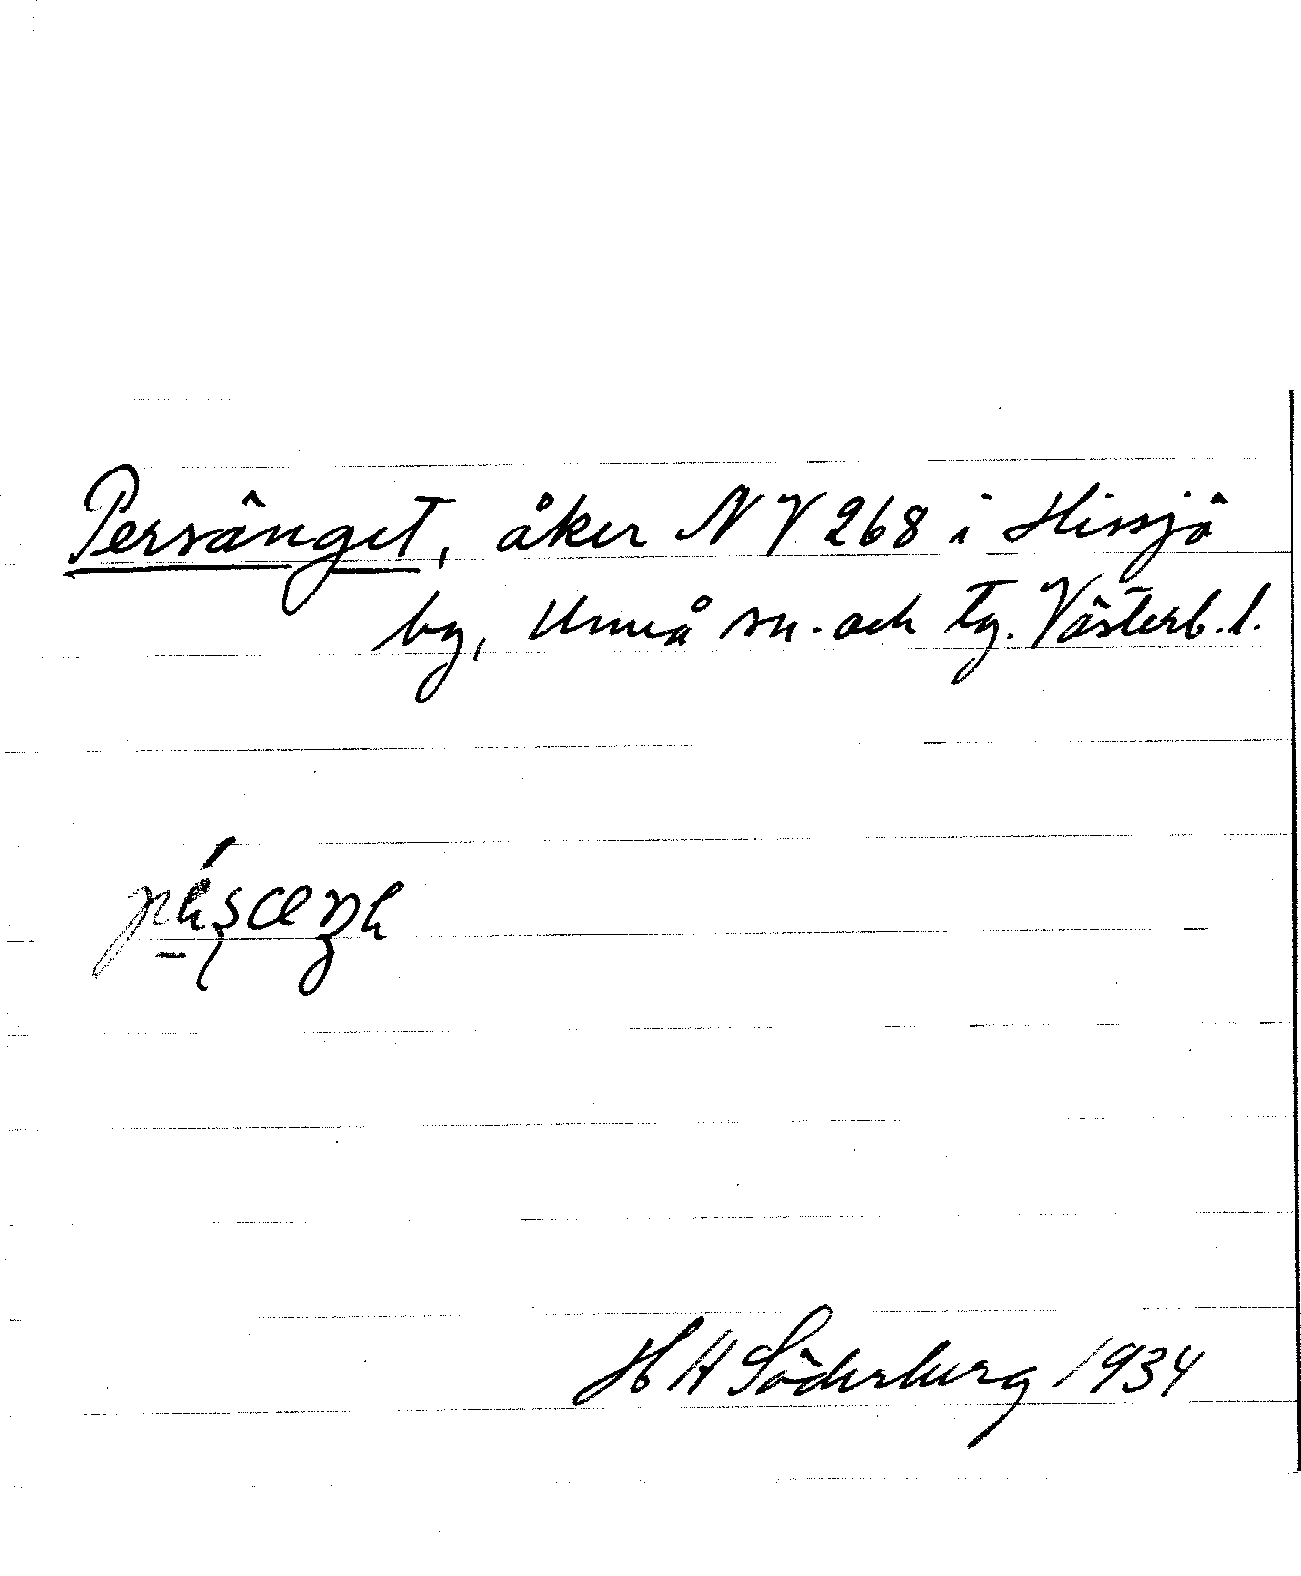 Persänget, åker NV 268 i Hissjö
by, Umeå sn. och tg. Västerb. l.
H A Söderberg 1934